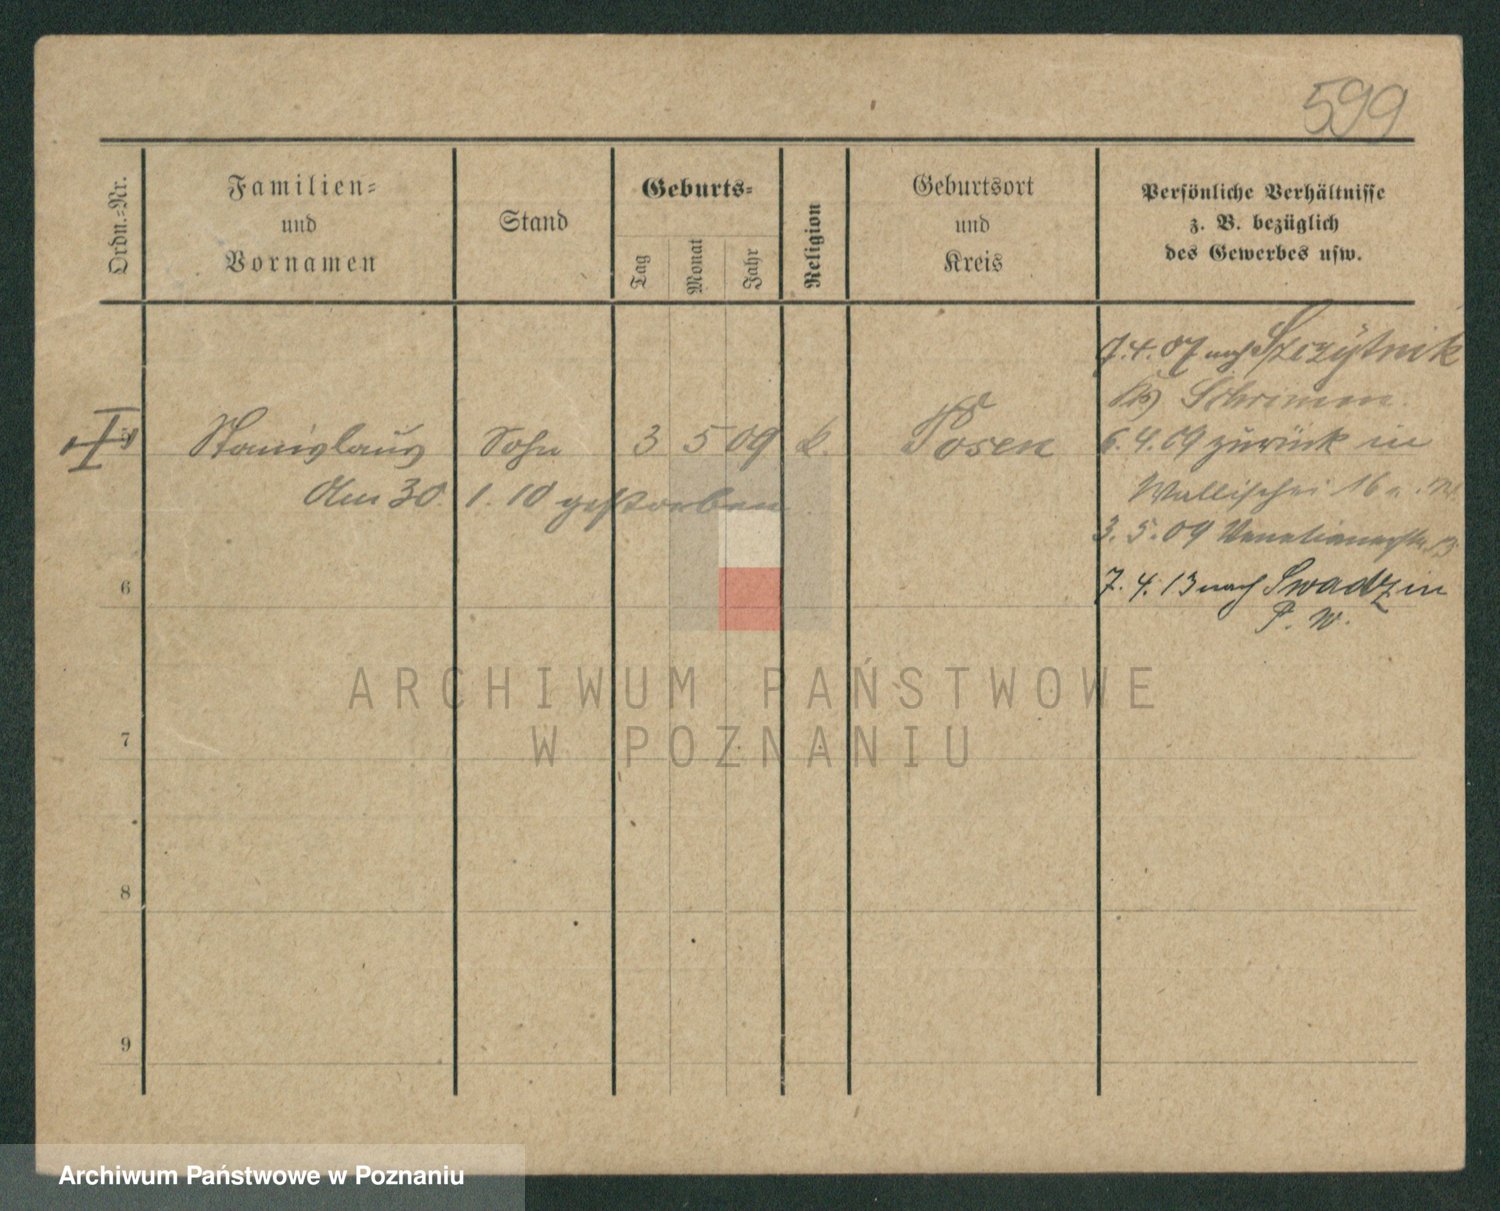 599
Ordn.-Nr.
Familien-
und
Vornamen
Stand
Geburts-
Tag
Monat
Jahr
Religion
Geburtsort
und
Kreis
Persönliche Verhältnisse
z. B. bezüglich
des Gewerbes usw.
5 Stanislaus Sohn 3 5 09 k. Posen
Am 30. 1. 10 gestorben.
7.4.07 nach Szczytnik
Schrimm.
6.4.09 zurück in
Wallischei 16
3.5.09
7.4.13 nach Swadzin
P. W.
6
7
8
9
ARCHIWUM PAŃSTWOWE
W POZNANIU
Archiwum Państwowe w Poznaniu